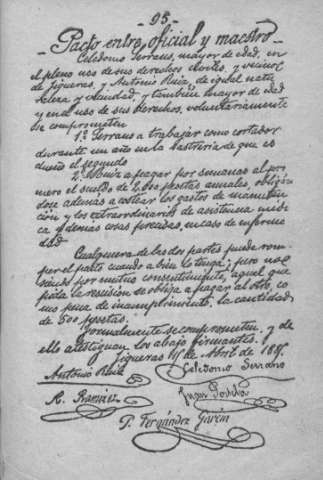 - 95 -
Pacto entre oficial y maestro
Celedonio Serrano, mayor de edad, en
el pleno uso de sus derechos civiles, y vecino
de Figueras, y Antonio Ruiz, de igual natu
raleza y vecindad, y también mayor de edad
y en el uso de sus derechos, voluntariamente
se comprometen
1.º Serrano a trabajar como cortador
durante un año en la sastrería de que es
dueño el segundo
2.º Ruiz a pagar por semanas al pri
mero el sueldo de 2.000 pesetas anuales, obligán
dose además a costear los gastos de manuten
ción y los extraordinarios de asistencia médi
ca y demás cosas precisas, en caso de enferme
dad
Cualquiera de las dos partes puede rom
per el pacto cuando a bien lo tenga; pero no
siendo por mutuo consentimiento, aquel que
pida la rescisión se obliga a pagar al otro, co
mo pena de incumplimiento, la cantidad
de 500 pesetas.
Formalmente se comprometen, y de
ello atestiguan los abajo firmantes.
Figueras de Abril de
Antonio Ruiz Celedonio Serrano
R. Ramírez Juan
P. Fernández García